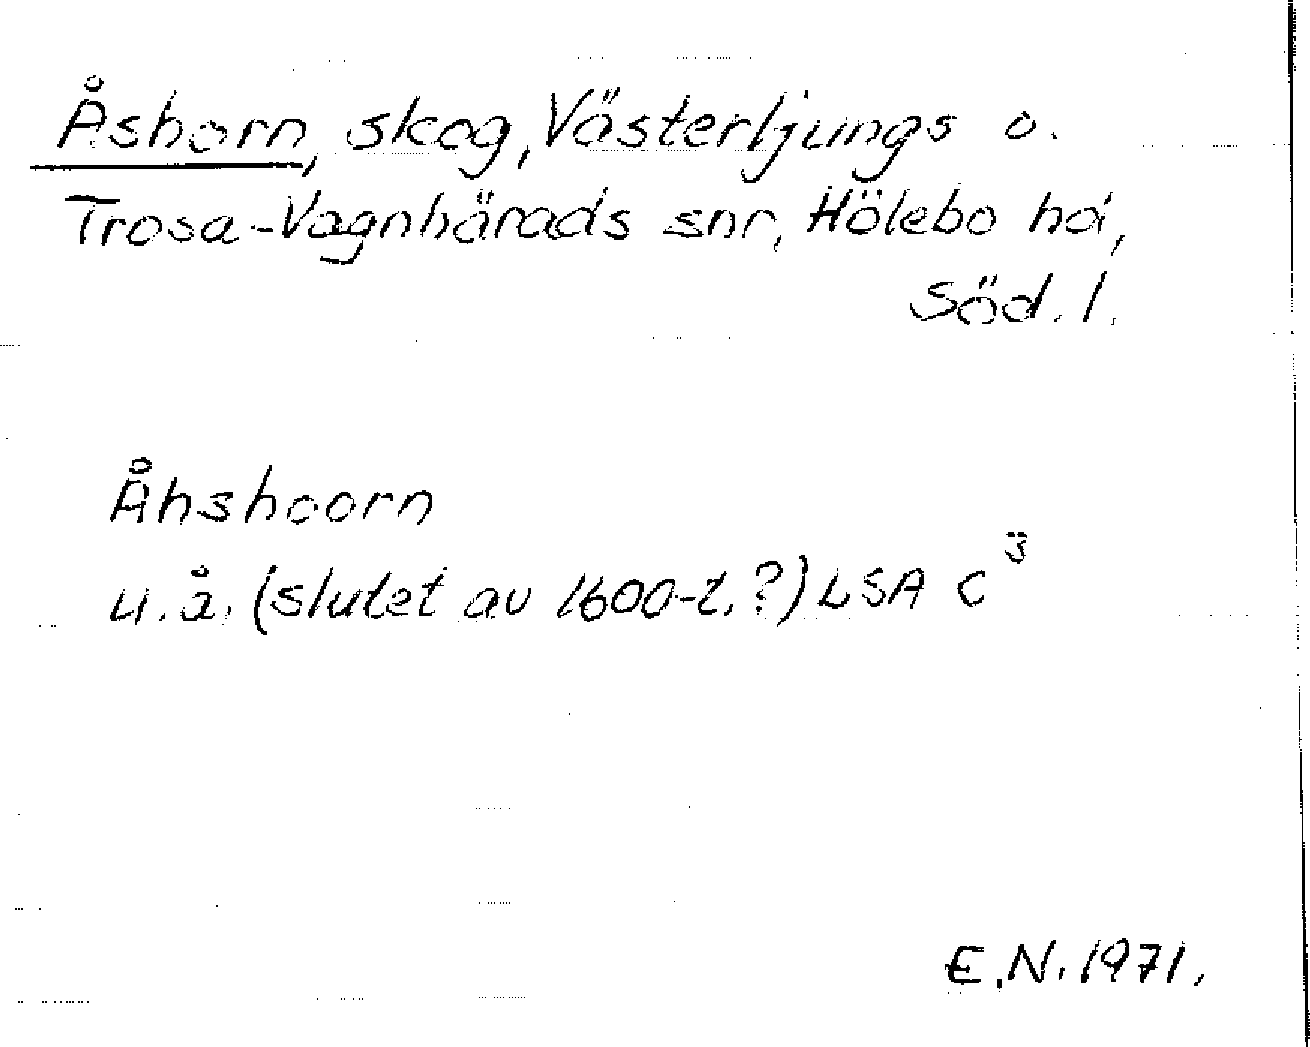 Åshorn, skog, Västerljungs o.
Trosa-Vagnhärads snr, Hölebo hd,
Söd. l.
Åhshoorn
u.å. (slutet av 1600-t.?) LSA C³
E.N. 1971.